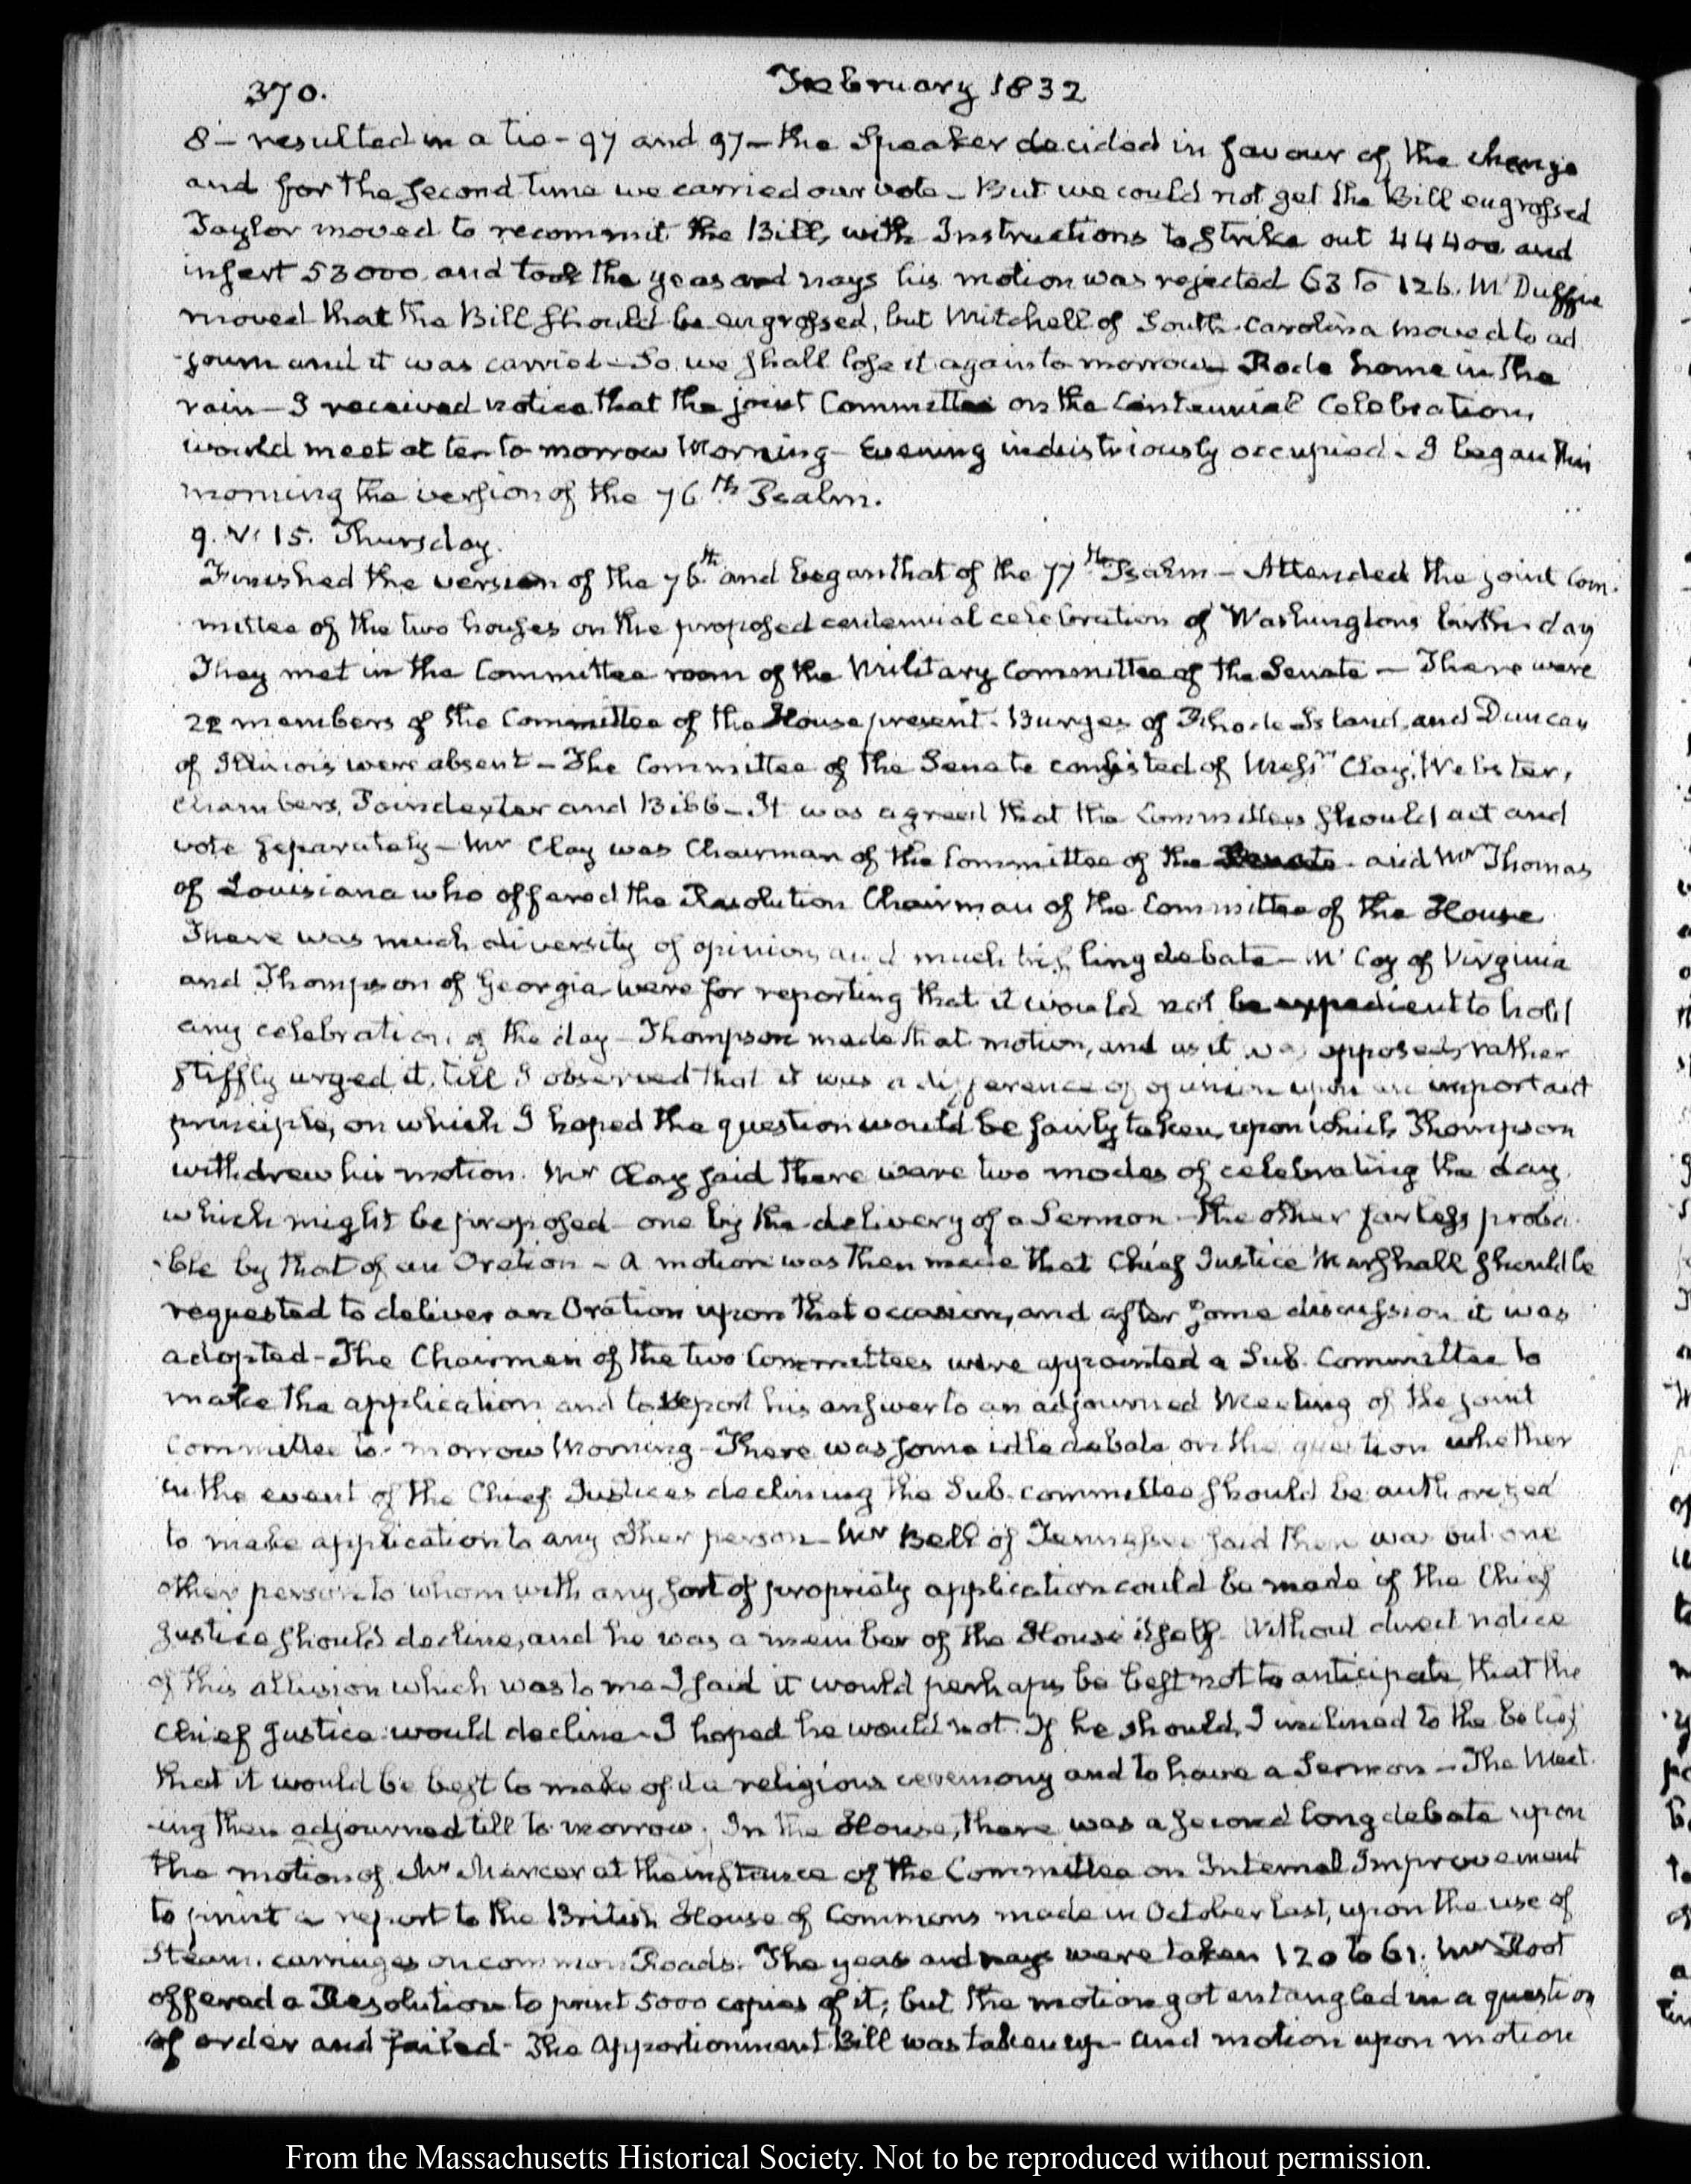 370.
February 1832
8 — resulted in a tie - 97 and 97 — the Speaker decided in favour of the change
and for the second time we carried our vote — But we could not get the Bill engrossed
Taylor moved to recommit the Bill, with Instructions to strike out 44400 and
insert 53000 and took the yeas and nays his motion was rejected 63 to 126. McDuffie
moved that the Bill should be engrossed, but Mitchell of South-Carolina moved to ad
-journ and it was carried — So we shall lose it again to morrow — Rode home in the
rain — I received notice that the joint Committee on the Centennial Celebration,
would meet at ten to morrow Morning — Evening industriously occupied — I began this
morning the version of the 76th Psalm.
9. V: 15. Thursday.
Finished the version of the 76th and began that of the 77th Psalm — Attended the joint Com-
mittee of the two houses on the proposed centennial celebration of Washingtons birth-day
They met in the Committee room of the Military Committee of the Senate — There were
22 members of the Committee of the House present - Burges of Rhode-Island, and Duncan
of Illinois were absent — The Committee of the Senate consisted of Messrs Clay, Webster,
Chambers, Poindexter and Bibb — It was agreed that the Committees should act and
vote separately — Mr Clay was Chairman of the Committee of the Senate - and Mr Thomas
of Louisiana who offered the Resolution Chairman of the Committee of the House
There was much diversity of opinion, and much trifling debate — McCoy of Virginia
and Thompson of Georgia were for reporting that it would not be expedient to hold
any celebration of the day — Thompson made that motion, and as it was opposed, rather
stiffly urged it, till I observed that it was a difference of opinion upon an important
principle, on which I hoped the question would be fairly taken, upon which Thompson
withdrew his motion. Mr Clay said there were two modes of celebrating the day
which might be proposed one by the delivery of a Sermon the other far less proba-
-ble by that of an Oration — A motion was then made that Chief Justice Marshall should be
requested to deliver an Oration upon that occasion, and after some discussion it was
adopted — The Chairmen of the two Committees were appointed a Sub-Committee to
make the application and to report his answer to an adjourned Meeting of the joint
Committee to-morrow Morning — There was some idle debate on the question whether
in the event of the Chief Justices declining the Sub-committee should be authorized
to make application to any other person — Mr Bell of Tennessee said there was but one
other person to whom with any sort of propriety application could be made if the Chief
Justice should decline, and he was a member of the House itself. Without direct notice
of this allusion which was to me I said it would perhaps be best not to anticipate that the
Chief Justice would decline — I hoped he would not. If he should, I inclined to the belief
that it would be best to make of it a religious ceremony and to have a Sermon — The Meet-
-ing then adjourned till to-morrow. In the House, there was a second long debate upon
the motion of Mr Mercer at the instance of the Committee on Internal Improvement
to print a report to the British House of Commons made in October last, upon the use of
Steam-carriages on common Roads. The yeas and nays were taken 120 to 61. Mr Root
offered a Resolution to print 5000 copies of it; but the motion got entangled in a question
of order and failed - The Apportionment Bill was taken up - and motion upon motion
From the Massachusetts Historical Society. Not to be reproduced without permission.